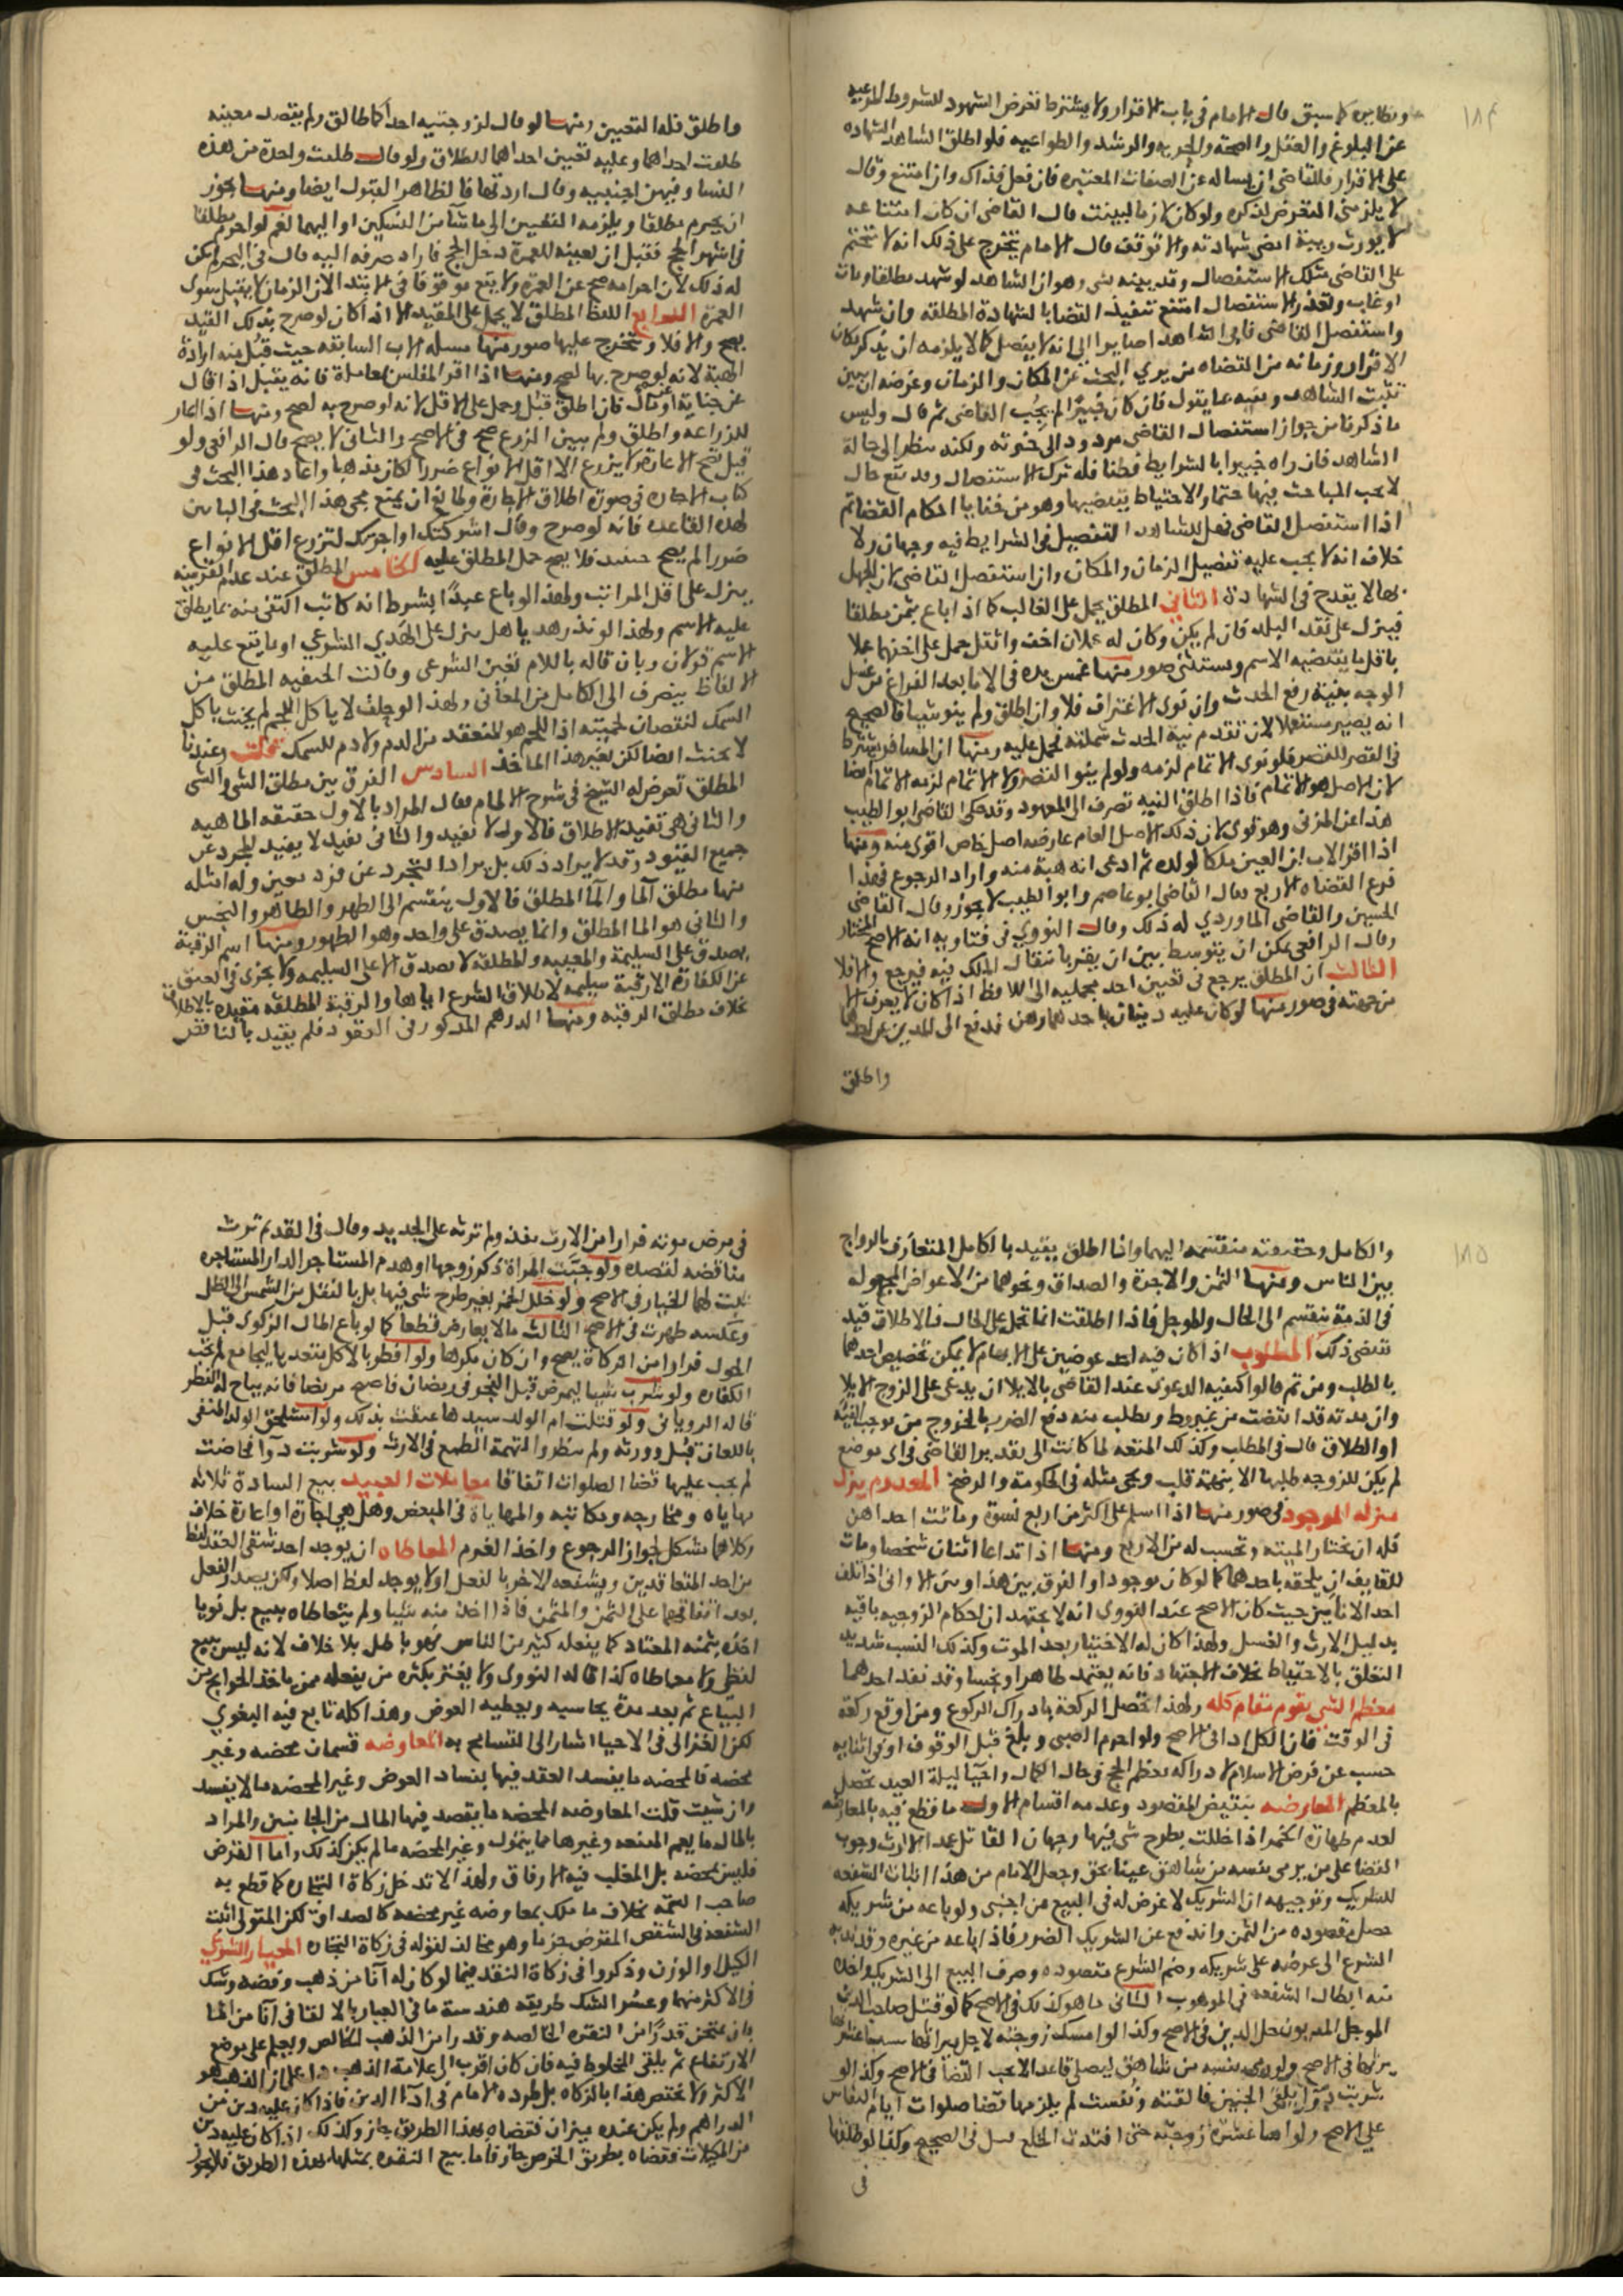 ١٨٤
ونظايره كما سبق قال الامام في باب الاقرار ولا يشترط تعرض الشهود للشروط المرعيه
عن البلوغ والعقل والصحة والحريه والرشد والطواعيه فلو اطلق الشاهد الشهاده
على الاقرار فللقاضي ان يساله عن الصفات المعتبره فان فعل فذاك وان امتنع وقال
لا يلزمني التعرض لذكره ولو كان لازما لبينت قال القاضي ان كان امتناعه
لا يورث ريبة امضى شهادته والا توقف قال الامام يتخرج على ذلك انه لا تتحتم
على القاضي مسلك الاستفصال وقد بينه شي وهو ان الشاهد لو شهد مطلقا ومات
او غاب وتعذر الاستفصال امتنع تنفيذ القضا بالشهادة المطلقه وان شهد
واستفصل القاضي فابى الشاهد اصابوا الى انه لا يفصل كما لا يلزمه ان يذكر مكان
الاقرار وزمانه من القضاه من يري البحث عن المكان والزمان وغرضه ان يتبين
تثبت الشاهد وتنبه عما يقول فان كان خبيرا لم يجب القاضي ثم قال وليس
ما ذكرنا من جواز استفصال القاضي مردود الى خبرته ولكنه ينظر الى حالة
الشاهد فان راه خبيرا بالشرايط فطنا فله ترك الاستفصال وقد يقع حال
لا يجب المباحث فيها حتما والاحتياط يقتضيها وهو من خفايا احكام القضا ثم
اذا استفصل القاضي فهل للشاهد التفصيل في الشرايط فيه وجهان ولا
خلاف انه لا يجب عليه تفصيل الزمان والمكان وان استفصل القاضي لان الجهل
بها لا يقدح في الشهادة الثاني المطلق يحمل على الغالب كما اذا باع بثمن مطلقا
فينزل على نقد البلد فان لم يكن وكان له محملان اخف واثقل حمل على اخفهما عملا
باقل ما يقتضيه الاسم ويستثنى صور منها غمس يده في الانا بعد الفراغ من غسل
الوجه بنية رفع الحدث وان نوى الاغتراف فلا وان اطلق ولم ينو شيا فالصحيح
انه يصير مستعملا لان تقدم نية الحدث شملته فحمل عليه ومنها ان المسافر يشترط
في القصر للقصر فلو نوى الاتمام لزمه ولو لم ينو القصر ولا الاتمام لزمه الاتمام ايضا
لان الاصل هو الاتمام فاذا اطلق النيه تصرف الى المعهود وقد حكى القاضي ابو الطيب
هذا عن المزني وهو قوي لان ذلك الاصل العام عارضه اصل خاص اقوى منه ومنها
اذا اقر الاب ان العين ملكا لولده ثم ادعى انه هبة منه واراد الرجوع فهذا
فرع القضاه الاربع فقال القاضي ابو عاصم وابو الطيب لا يجوز وقال القاضي
الحسين والقاضي الماوردي له ذلك وقال النووي في فتاويه انه الاصح المختار
وقال الرافعي يمكن ان يتوسط بين ان يقر بانتقال الملك فيه فيرجع والا فلا
الثالث ان المطلق يرجع في تعيين احد محمليه الى اللافظ اذا كان لا يعرف الا
من جهته في صور منها لو كان عليه دينان باحدهما رهن فدفع الى المدين عن احدهما
واطلق
واطلق فله التعيين ومنها لو قال لزوجتيه احداكما طالق ولم يقصد معينه
طلقت احداهما وعليه تعيين احداهما للطلاق ولو قال طلقت واحدة من هذه
النسا وفيهن اجنبيه وقال اردتها فالظاهر القبول ايضا ومنها يجوز
ان يحرم مطلقا ويلزمه التعيين الى ما شآ من النسكين او اليهما نعم لو احرم مطلقا
في اشهر الحج فقبل ان يعينه للعمرة دخل الحج فاراد صرفه اليه قال في البحر لم يكن
له ذلك لان احرامه صح عن العمرة ولا يقع موقوفا في الابتدا لان الزمان لا يقبل سوى
العمرة الرابع اللفظ المطلق لا يحمل على المقيد الا اذا كان لو صرح بذلك القيد
يصح والا فلا وتتخرج عليها صور منها مسله الاب السابقه حيث قبل منه ارادة
الهبة لانه لو صرح بها لصح ومنها اذا اقر المفلس بمعاملة فانه يقبل اذا قال
عن جناية او مال فان اطلق قبل وحمل على الاقل لانه لو صرح به لصح ومنها اذا اعار
للزراعه واطلق ولم يبين الزرع صح في الاصح والثاني لا يصح قال الرافعي ولو
قيل تصح الاعارة ولا يزرع الا اقل الانواع ضررا لكان مذهبا واعاد هذا البحث في
كتاب الاجاره في صورة اطلاق الاجارة ولمانع ان يمنع مجى هذا البحث في البابين
لهذه القاعده فانه لو صرح وقال اشركتك او اجرتك لتزرع اقل الانواع
ضررا لم يصح حينيذ فلا يصح حمل المطلق عليه الخامس المطلق عند عدم القرينه
ينزل على اقل المراتب ولهذا لو باع عبدا بشرط انه كاتب اكتفى منه بما يطلق
عليه الاسم ولهذا لو نذر هديا هل ينزل على الهدي الشرعي او ما يقع عليه
الاسم قولان وبان قاله باللام تعين الشرعي وقالت الحنفيه المطلق من
الالفاظ ينصرف الى الكامل من المعاني ولهذا لو حلف لا ياكل اللحم لم يحنث باكل
السمك لنقصان لحميته اذ اللحم هو المنعقد من الدم ولا دم للسمك قلت وعندنا
لا يحنث ايضا لكن بغير هذا الماخذ السادس الفرق بين مطلق الشي والشي
المطلق تعرض له الشيخ في شرح الالمام فقال المراد بالاول حقيقه الماهيه
والثاني هي بقيد الاطلاق فالاول لا بقيد والثاني بقيد لا يفيد التجرد عن
جميع القيود وقد لا يراد ذلك بل يراد التجرد عن فرد معين وله امثله
منها مطلق المآ والمآ المطلق فالاول ينقسم الى الطهور والطاهر والنجس
والثاني هو الما المطلق وانما يصدق على واحد وهو الطهور ومنها اسم الرقبة
يصدق على السليمة والمعيبه والمطلقة لا تصدق الا على السليمه ولا يجزى في العتق
عن الكفارة الا رقبة سليمه لاطلاق الشرع اياها والرقبة المطلقه مقيده بالاطلاق
بخلاف مطلق الرقبه ومنها الدرهم المذكور في العقود فلم يقيد بالناقص
١٨٥
والكامل وحقيقته منقسمه اليهما وانما اطلق يقيد بالكامل المتعارف بالرواج
بين الناس ومنها الثمن والاجرة والصداق ونحوهما من الاعواض المجعوله
في الذمة ينقسم الى الحال والموجل فاذا اطلقت انما تحمل على الحال فالاطلاق قيد
تقتضى ذلك المطلوب اذا كان فيه احد عوضين على الابهام لا يمكن تخصيص احدهما
بالطلب ومن ثم قالوا كيفيه الدعوى عند القاضي بالايلا ان يدعى على الزوج الايلا
وان مدته قد انقضت من غير وط ويطلب منه دفع الضرر بالخروج من موجب الفيئه
او الطلاق قال في المطلب وكذلك المتعه لما كانت الى تقدير القاضي في اى موضع
لم يكن للزوجه طلبها الا مبهمة قلت ويجي مثله في الحكومة والرضخ المعدوم ينزل
منزله الموجود في صور منها اذا اسلم على اكثر من اربع نسوة وماتت احداهن
فله ان يختار الميته وتحسب له من الاربع ومنها اذا تداعا اثنان شخصا ومات
للقايف ان يلحقه باحدهما كما لو كان موجودا والفرق بين هذا ومن الاواني اذا تلف
احد الانآين حيث كان الاصح عند النووي انه لا يجتهد ان احكام الزوجيه باقيه
بدليل الارث والغسل ولهذا كان له الاختيار بعد الموت وكذلك النسب شديد
التعلق بالاحتياط بخلاف الاجتهاد فانه يعتمد طاهرا ونجسا وقد فقد احدهما
معظم الشي يقوم مقام كله ولهذا تحصل الركعة بادراك الركوع ومن اوقع ركعة
في الوقت فان الكل ادا في الاصح ولو احرم الصبي وبلغ قبل الوقوف او في اثنايه
حسب عن فرض الاسلام لادراكه معظم الحج في حال الكمال واحيآ ليلة العيد تحصل
بالمعظم المعارضه بنقيض المقصود وعدمه اقسام الاول ما قطع فيه بالمعارضه
لعدم طهارة الخمر اذا خللت بطرح شي فيها وجهان القاتل عمدا الارث وجوب
القضا على من يرمي نفسه من شاهق عبثا فجن وجعل الامام من هذا اثبات الشفعه
للشريك وتوجيهه ان الشريك لا غرض له في البيع من اجنبي ولو باعه من شريكه
حصل مقصوده من الثمن واندفع عن الشريك الضرر فاذا باعه من غيره وقد ندبه
الشرع الى عرضه على شريكه وضم الشرع مقصوده وصرف المبيع الى الشريك واخذه
منه ابطال الشفعه في الموهوب الثاني ما هو كذلك في الاصح كما لو قتل صاحب الدين
الموجل المديون حل الدين في الاصح وكذا لو امسك زوجته لاجل ميراثها
يرثها في الاصح ولو رمى نفسه من شاهق ليصلي قاعدا لا يجب القضا في الاصح وكذا لو
شربت دوآ يلقى الجنين فالقته ونفست لم يلزمها قضا صلوات ايام النفاس
على الاصح ولو اسا عشرة زوجته حتى افتدت الخلع فسل في الصحيح وكذا لو طلقها
في
في مرض موته فرارا من الارث نفذ ولم ترثه على الجديد وقال في القديم ترث
مناقضه لقصده ولو جبت المراة ذكر زوجها او هدم المستاجر الدار المستاجره
ثبت لهما الخيار في الاصح ولو خلل الخمر بغير طرح شي فيها بل بالنقل من الشمس الى الظل
وعكسه طهرت في الاصح الثالث ما لا يعارض قطعا كما لو باع المال الزكوى قبل
الحول فرارا من الزكاة يصح وان كان مكروها ولو افطر بالاكل متعديا ليجامع لم تجب
الكفاره ولو شرب شيا ليمرض قبل الفجر في رمضان فاصبح مريضا فانه يباح له الفطر
قاله الروياني ولو قتلت ام الولد سيدها عتقت بذلك ولو استلحق الولد المنفي
باللعان قبل وورثه ولم ينظروا التهمة الطمع في الارث ولو شربت دوآ فحاضت
لم يجب عليها قضا الصلوات اتفاقا معاملات العبيد بيع السادة ثلاثه
مهاياه ومخارجه ومكاتبه والمهاياة في المبعض وهل هي اجارة او اعارة خلاف
وكلاهما مشكل لجواز الرجوع واخذ الغرم المعاطاه ان يوجد احد شقى العقد لفظ
من احد المتعاقدين ويشفعه الاخر بالفعل او لا يوجد لفظ اصلا ولكن يصدر الفعل
بعد اتفاقهما على الثمن والمثمن فاذا اخذ منه شيا ولم يتعاطاه ببيع بل نويا
اخذه بثمنه المعتاد كما يفعله كثير من الناس فهو باطل بلا خلاف لانه ليس ببيع
لفظي ولا معاطاه كذا قاله النووي ولا يغتر بكثره من يفعله ممن ياخذ الحوايج من
البياع ثم بعد مدة يحاسبه ويعطيه العوض وهذا كله تابع فيه البغوي
لكن الغزالي في الاحيا اشار الى التسامح به المعاوضه قسمان محضه وغير
محضه فالمحضه ما يفسد العقد فيها بفساد العوض وغير المحضه ما لا يفسد
وان شيت قلت المعاوضه المحضه ما يقصد فيها المال من الجانبين والمراد
بالمال ما يعم المنفعه وغيرها مما يتمول وغير المحضه ما لم يكن كذلك واما القرض
فليس بمحضه بل المغلب فيه الارفاق ولهذا لا تدخل زكاة التجاره كما قطع به
صاحب التتمه بخلاف ما ملك بمعاوضه غير محضه كالصداق لكن المتولي اثبت
الشفعة في الشقص المقترض جزما وهو مخالف لقوله في زكاة التجاره المعيار الشرعي
الكيل والوزن وذكروا في زكاة النقد فيما لو كان له انآ من ذهب وفضه وشك
في الاكثر منهما وعسر الشك طريقه هندسية ما في العيار بالالقا في انآ من الما
بان يمتحن قدرا من النقره الخالصه وقدرا من الذهب الخالص ويعلم على موضع
الارتفاع ثم يلقى المخلوط فيه فان كان اقرب الى علامة الذهب علم ان الذهب هو
الاكثر ولا يختص هذا بالزكاه بل طرده الامام في ادآ الدين فاذا كان عليه دين من
الدراهم ولم يكن عنده ميزان فقضاه بهذا الطريق جاز وكذلك اذا كان عليه دين
من المكيلات فقضاه بطريق الخرص جاز فاما بيع النقره بمثلها بهذه الطريق فلا يجوز